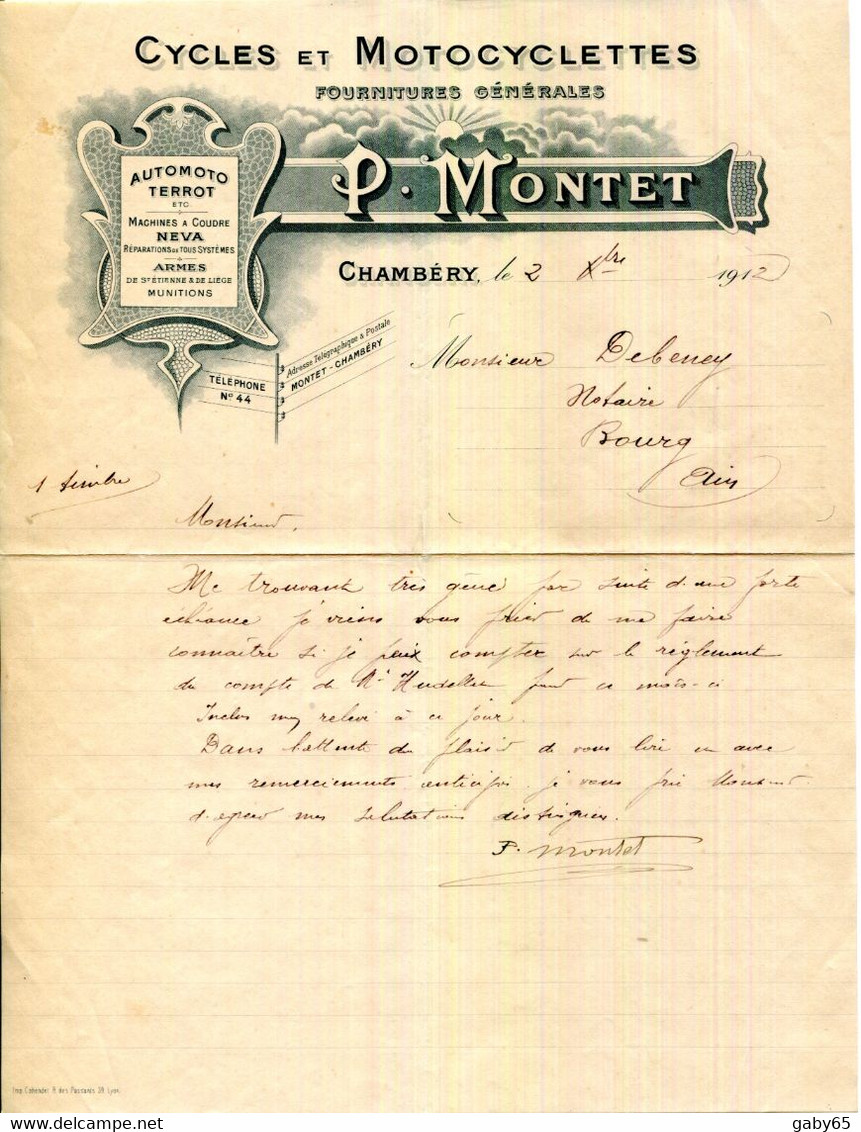 CYCLES ET MOTOCYCLETTES
FOURNITURES GÉNÉRALES
P. MONTET
AUTOMOTO
TERROT
ETC
MACHINES A COUDRE
NEVA
RÉPARATIONS DE TOUS SYSTÈMES
ARMES
DE ST ÉTIENNE & DE LIÈGE
MUNITIONS
CHAMBÉRY, le 2 Xbre 1912
Adresse Télégraphique & Postale
MONTET-CHAMBÉRY
TÉLÉPHONE
No 44
Monsieur Debeney
Notaire
Bourg
Ain
1 timbre
Monsieur,
Me trouvant très gêné par suite d'une forte
échéance je viens vous prier de me faire
connaître si je peux compter sur le règlement
du compte de Mr fin ce mois-ci
Inclus mon relevé à ce jour.
Dans l'attente du plaisir de vous lire et avec
mes remerciements anticipés, je vous prie Monsieur
d'agréer mes salutations distinguées.
P. Montet
Imp. des 39 Lyon
delcampe.net
gaby65